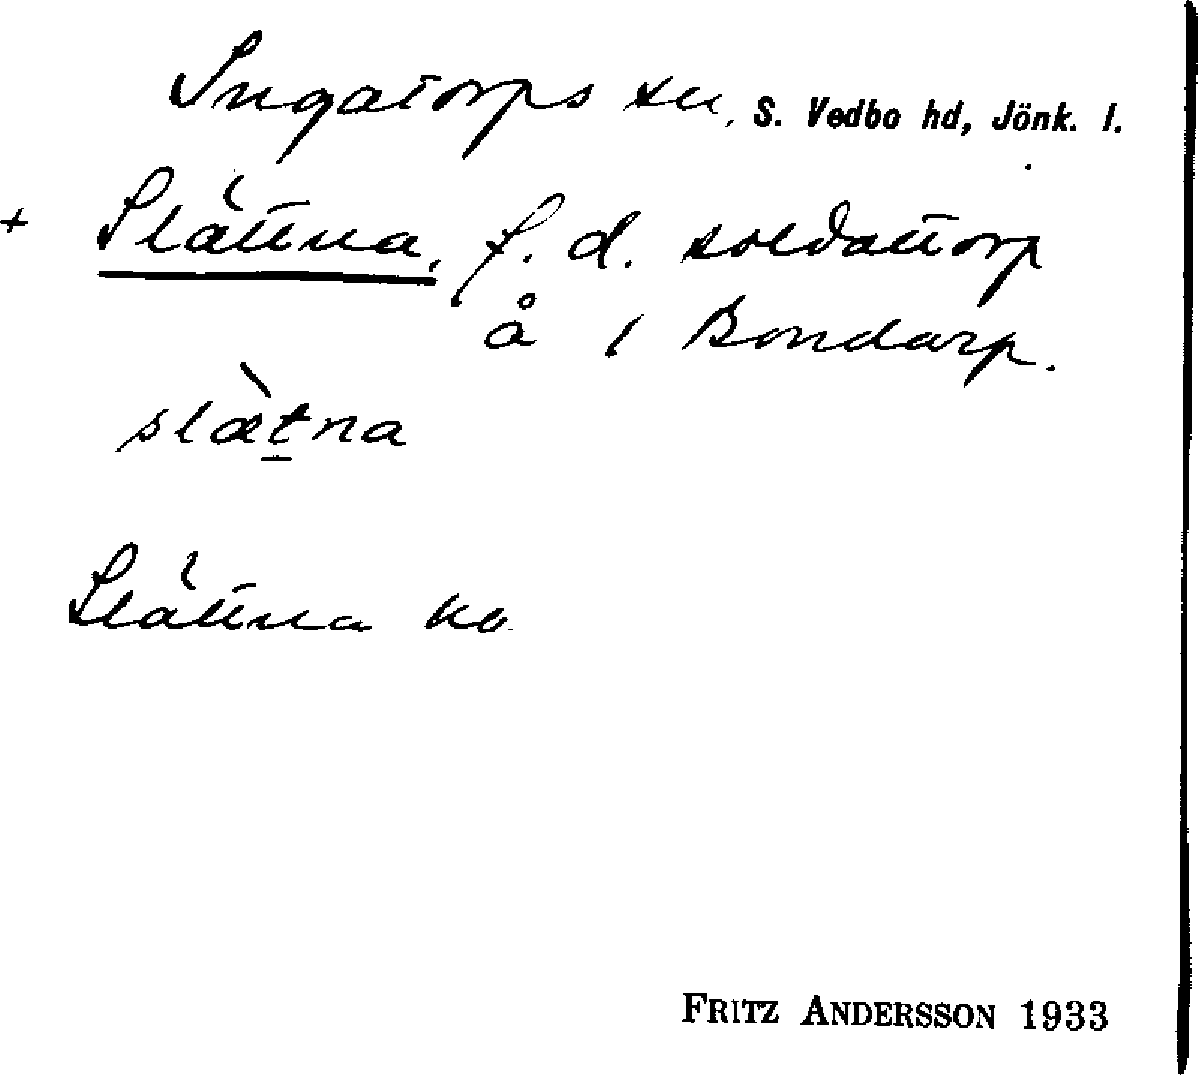 Ingatorps sn, S. Vedbo hd, Jönk. l.
+ Slättna, f. d. soldattorp
å 1 Bondarp.
slæ̀tna
Slättna ko
FRITZ ANDERSSON 1933